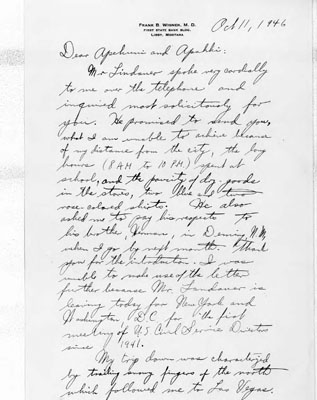 FRANK B. WISNER, M. D.
FIRST STATE BANK BLDG.
LIBBY, MONTANA
Oct 11, 1946
Dear and
Mr Lindauer spoke very cordially
to me over the telephone and
inquired most solicitously for
you. He promised to send you,
what I am unable to achive because
of my distance from the city, the long
hours (8 A.M. to 10 P.M.) spent at
school, and the paucity of dry goods
in the stores, two
rose-colored shirts. He also
asked me to pay his respects to
his brother in Deming, N.M.
when I go by next month. Thank
you for the introduction. I was
unable to make use of the letter
further because Mr. Lindauer is
leaving today for New York and
Washington D.C. for the first
meeting of U.S Civil Service
since 1941.
My trip down was characterized
by trailing fingers of the north
which followed me to Las Vegas.